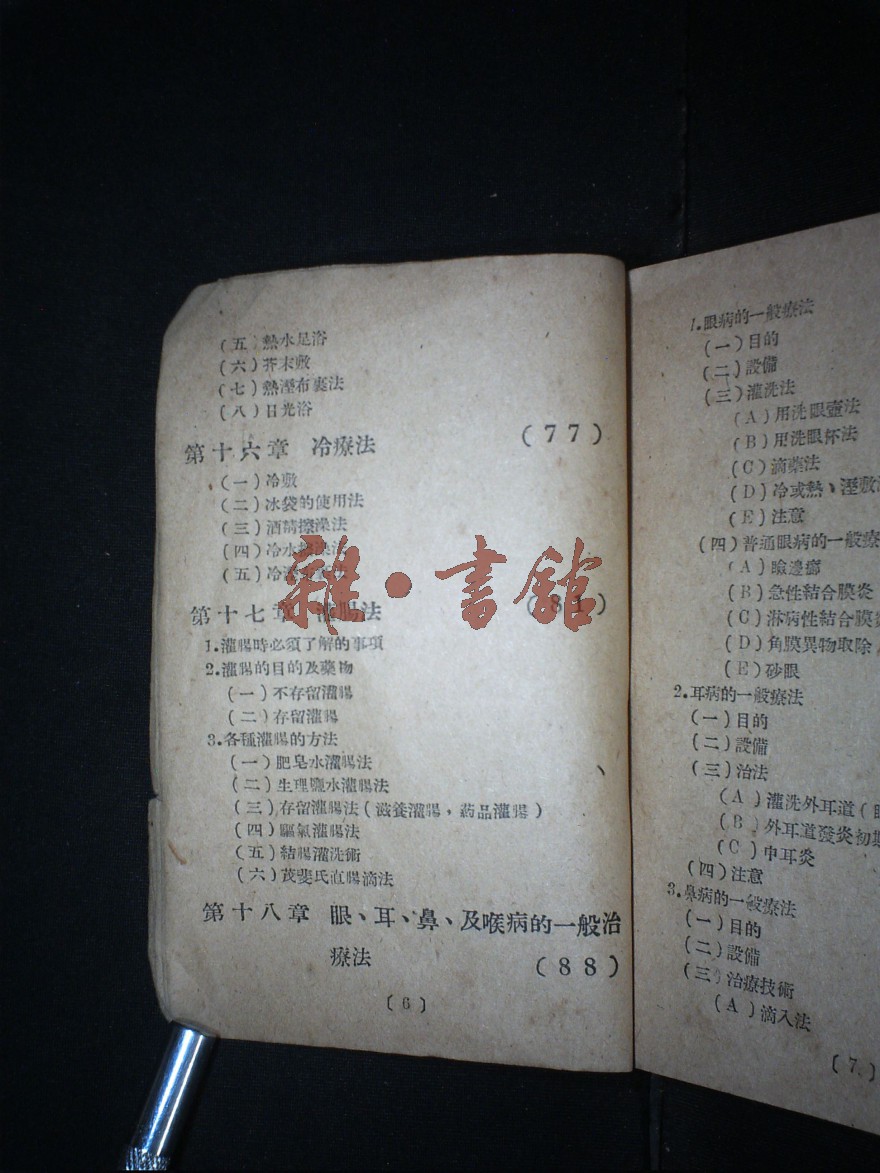 (五)熱水足浴
(六)芥末敷
(七)熱溼布裹法
(八)日光浴
第十六章 冷療法 (77)
(一)冷敷
(二)冰袋的使用法
(三)酒精擦澡法
(四)冷水擦澡法
(五)冷溼
第十七章 灌腸法 (81)
1.灌腸時必須了解的事項
2.灌腸的目的及藥物
(一)不存留灌腸
(二)存留灌腸
3.各種灌腸的方法
(一)肥皂水灌腸法
(二)生理鹽水灌腸法
(三)存留灌腸法(滋養灌腸,葯品灌腸)
(四)驅氣灌腸法
(五)結腸灌洗術
(六)茂斐氏直腸滴法
第十八章 眼、耳、鼻、及喉病的一般治
療法 (88)
(6)
雜·書館
1.眼病的一般療法
(一)目的
(二)設備
(三)灌洗法
(A)用洗眼壺法
(B)用洗眼杯法
(C)滴藥法
(D)冷或熱、溼敷
(E)注意
(四)普通眼病的一般療
(A)瞼邊
(B)急性結合膜炎
(C)淋病性結合膜
(D)角膜異物取除
(E)砂眼
2.耳病的一般療法
(一)目的
(二)設備
(三)治法
(A)灌洗外耳道(
(B)外耳道發炎初
(C)中耳炎
(四)注意
3.鼻病的一般療法
(一)目的
(二)設備
(三)治療技術
(A)滴入法
(7)